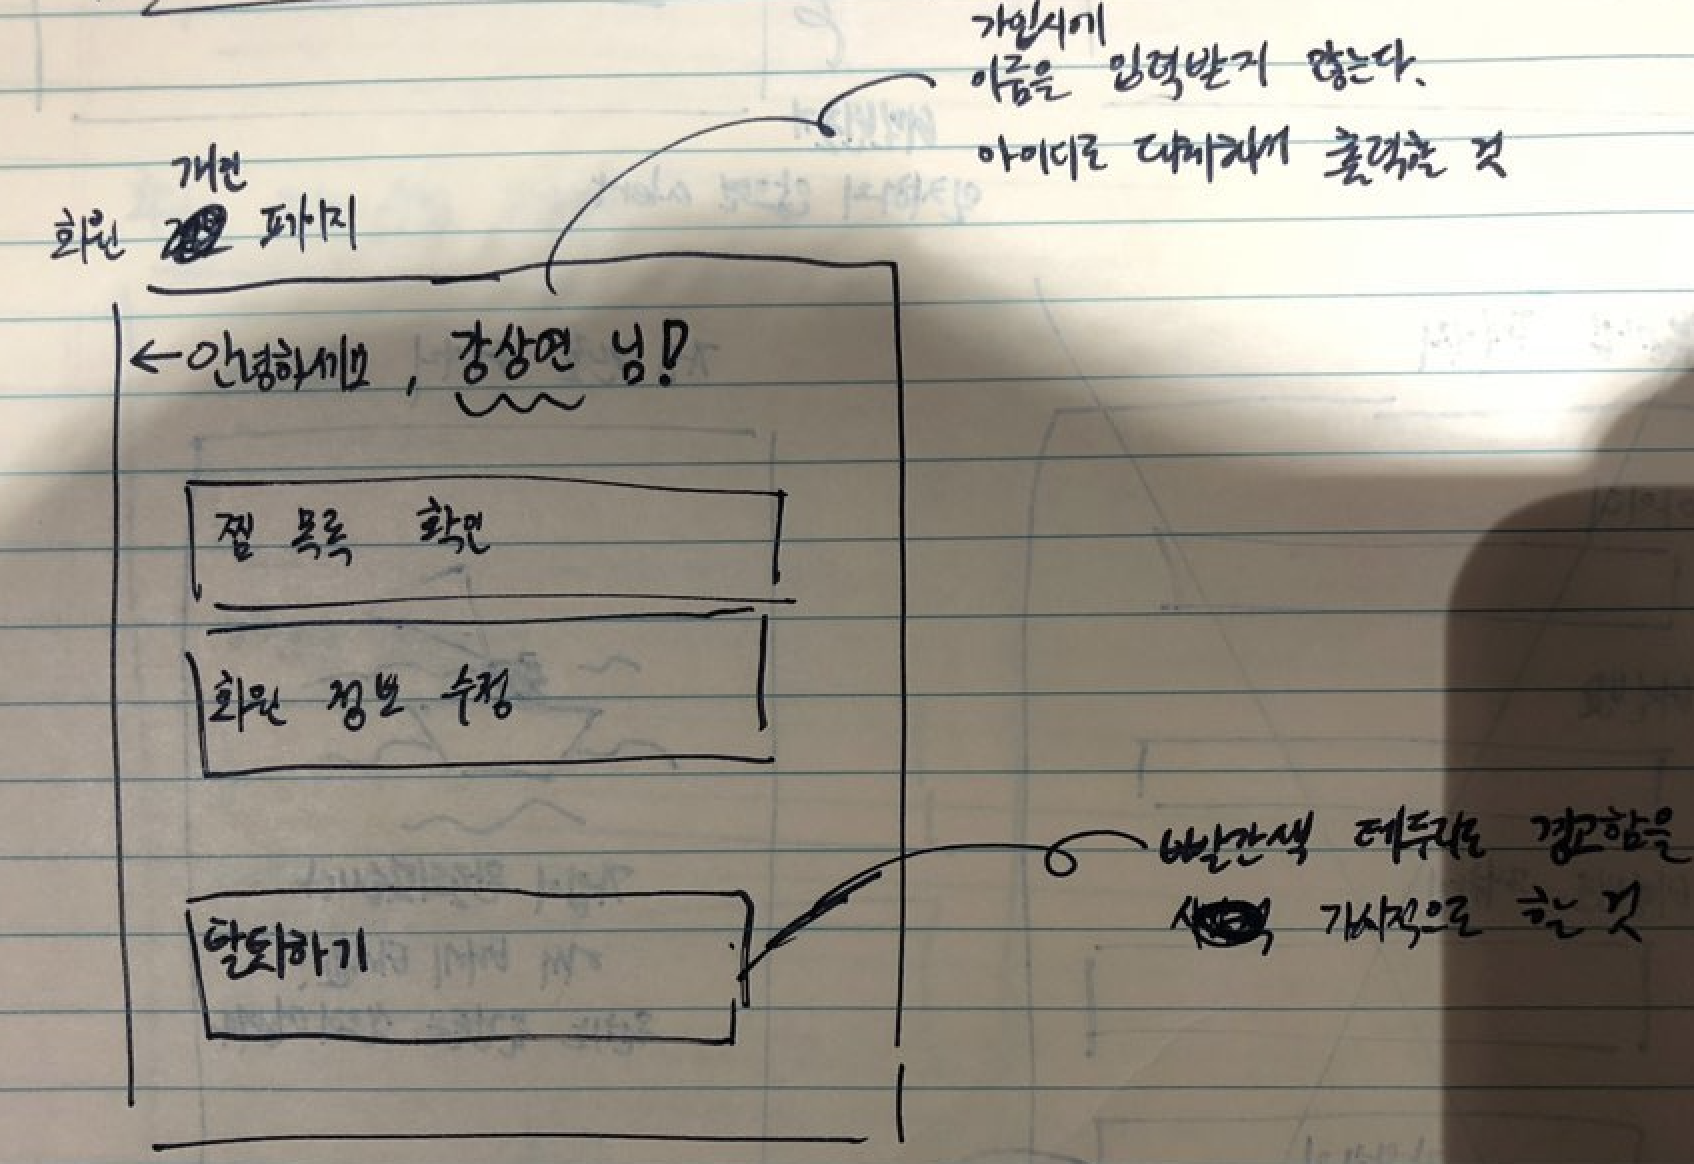 가입시에
이름을 입력받지 않는다.
아이디로 대체해서 출력할 것
개인
회원 페이지
←안녕하세요, 강상연 님!
찜 목록 확인
회원 정보 수정
빨간색 테두리로 경고함을
가시적으로 할 것
탈퇴하기